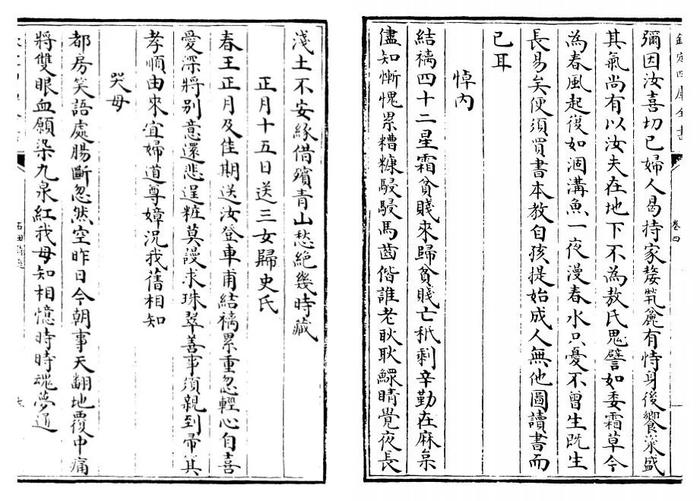 欽定四庫全書
卷四
彌因汝喜切已婦人易持家嫠煢麄有恃身後饗粢盛
其氣尚有以汝夫在地下不為敖氏鬼譬如委霜草今
為春風起復如涸溝魚一夜漫春水只憂不曽生既生
長易矣便須買書本教自孩提始成人無他圖讀書而
已耳
悼内
結褵四十二星霜貧賤來歸貧賤亡秪剩辛勤在麻枲
儘知慚愧累糟糠駸駸馬齒偕誰老耿耿鰥睛覺夜長
淺土不安緣借殯青山愁絶幾時藏
正月十五日送三女歸史氏
春王正月及佳期送汝登車甫結褵累重忽輕心自喜
愛深將别意還悲逞粧莫漫求珠翠善事須親到帚箕
孝順由來宜婦道尊嫜況我舊相知
哭母
都房笑語處腸斷忽然空昨日今朝事天翻地覆中痛
將雙眼血願染九泉紅我母知相憶時時魂夢通
石田詩選